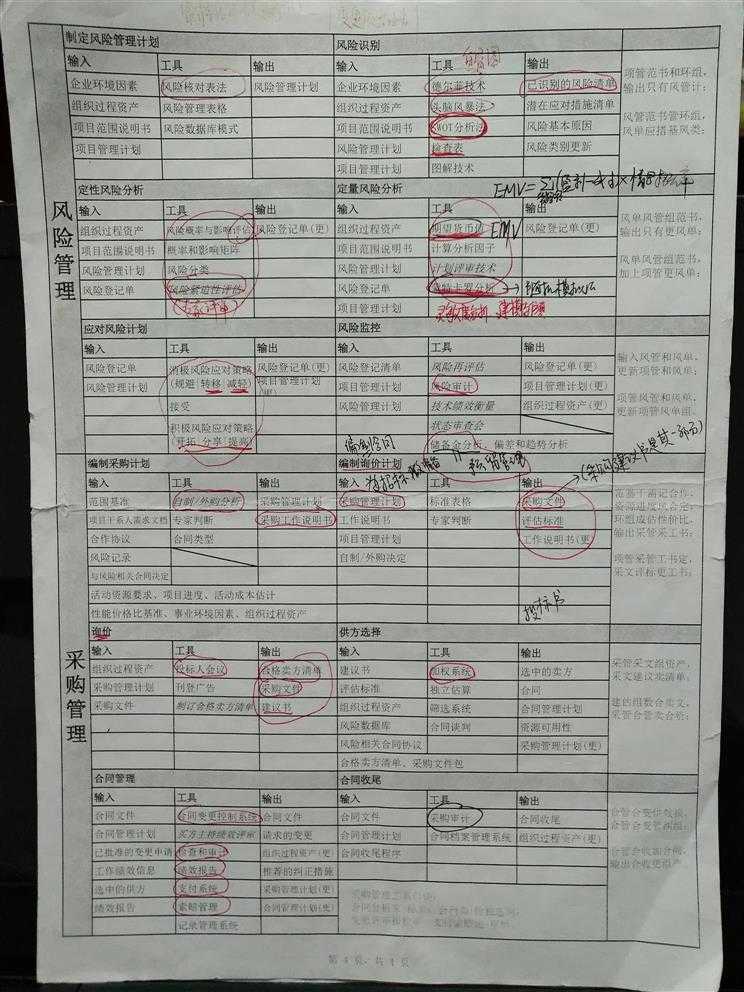 制定风险管理计划 风险识别
输入 工具 输出 输入 工具 输出
企业环境因素 风险核对表法 风险管理计划 企业环境因素 德尔菲技术 已识别的风险清单
组织过程资产 风险管理表格 组织过程资产 头脑风暴法 潜在应对措施清单
项目范围说明书 风险数据库模式 项目范围说明书 SWOT分析法 风险基本原因
项目管理计划 风险管理计划 检查表 风险类别更新
项目管理计划 图解技术
项管范书和环组,
输出只有风管计;
风管范书管环组,
风单应措基风类;
EMV=
风险管理
定性风险分析 定量风险分析
输入 工具 输出 输入 工具 输出
组织过程资产 风险概率与影响评估 风险登记单(更) 组织过程资产 期望货币值 EMV 风险登记单(更)
项目范围说明书 概率和影响矩阵 项目范围说明书 计算分析因子
风险管理计划 风险分类 风险管理计划 计划评审技术
风险登记单 风险紧迫性评估 风险登记单 蒙特卡罗分析
项目管理计划
风单风管组范书,
输出只有更风单;
风单风管组范书,
加上项管更风单;
应对风险计划 风险监控
输入 工具 输出 输入 工具 输出
风险登记单 消极风险应对策略 风险登记单(更) 风险登记清单 风险再评估 风险登记单(更)
风险管理计划 (规避 转移 减轻) 项目管理计划(更) 风险管理计划 风险审计 项目管理计划(更)
接受 技术绩效衡量 组织过程资产(更)
积极风险应对策略 状态审查会
(开拓 分享 提高) 储备金分析、偏差和趋势分析
输入风管和风单,
更新项管和风单;
项管风管和风单,
更新项管风单组.
编制采购计划 编制询价计划
输入 工具 输出 输入 工具 输出
范围基准 自制/外购分析 采购管理计划 采购管理计划 标准表格 采购文件
项目干系人需求文档 专家判断 采购工作说明书 工作说明书 专家判断 评估标准
合作协议 合同类型 项目管理计划 工作说明书(更)
风险记录 自制/外购决定
与风险相关合同决定
活动资源要求、项目进度、活动成本估计
性能价格比基准、事业环境因素、组织过程资产
范基干需记合作,
环组成估性价比,
输出采管采工书;
项管采管工书定,
采文评标更工书;
投标书
采购管理
询价 供方选择
输入 工具 输出 输入 工具 输出
组织过程资产 投标人会议 合格卖方清单 建议书 加权系统 选中的卖方
采购管理计划 刊登广告 采购文件 评估标准 独立估算 合同
采购文件 制订合格卖方清单 建议书 组织过程资产 筛选系统 合同管理计划
风险数据库 合同谈判 资源可用性
风险相关合同协议 采购管理计划(更)
合格卖方清单、采购文件包
采管采文组资产,
采文建议卖清单;
采管合管卖合资;
合同管理 合同收尾
输入 工具 输出 输入 工具 输出
合同文件 合同变更控制系统 合同文件 合同文件 采购审计 合同收尾
合同管理计划 买方主持绩效评审 请求的变更 合同管理计划 合同档案管理系统 组织过程资产(更)
已批准的变更申请 检查和审计 组织过程资产(更) 合同收尾程序
工作绩效信息 绩效报告 推荐的纠正措施
选中的供方 支付系统 采购管理计划(更)
绩效报告 索赔管理 合同管理计划(更)
记录管理系统
第 4 页 共 4 页